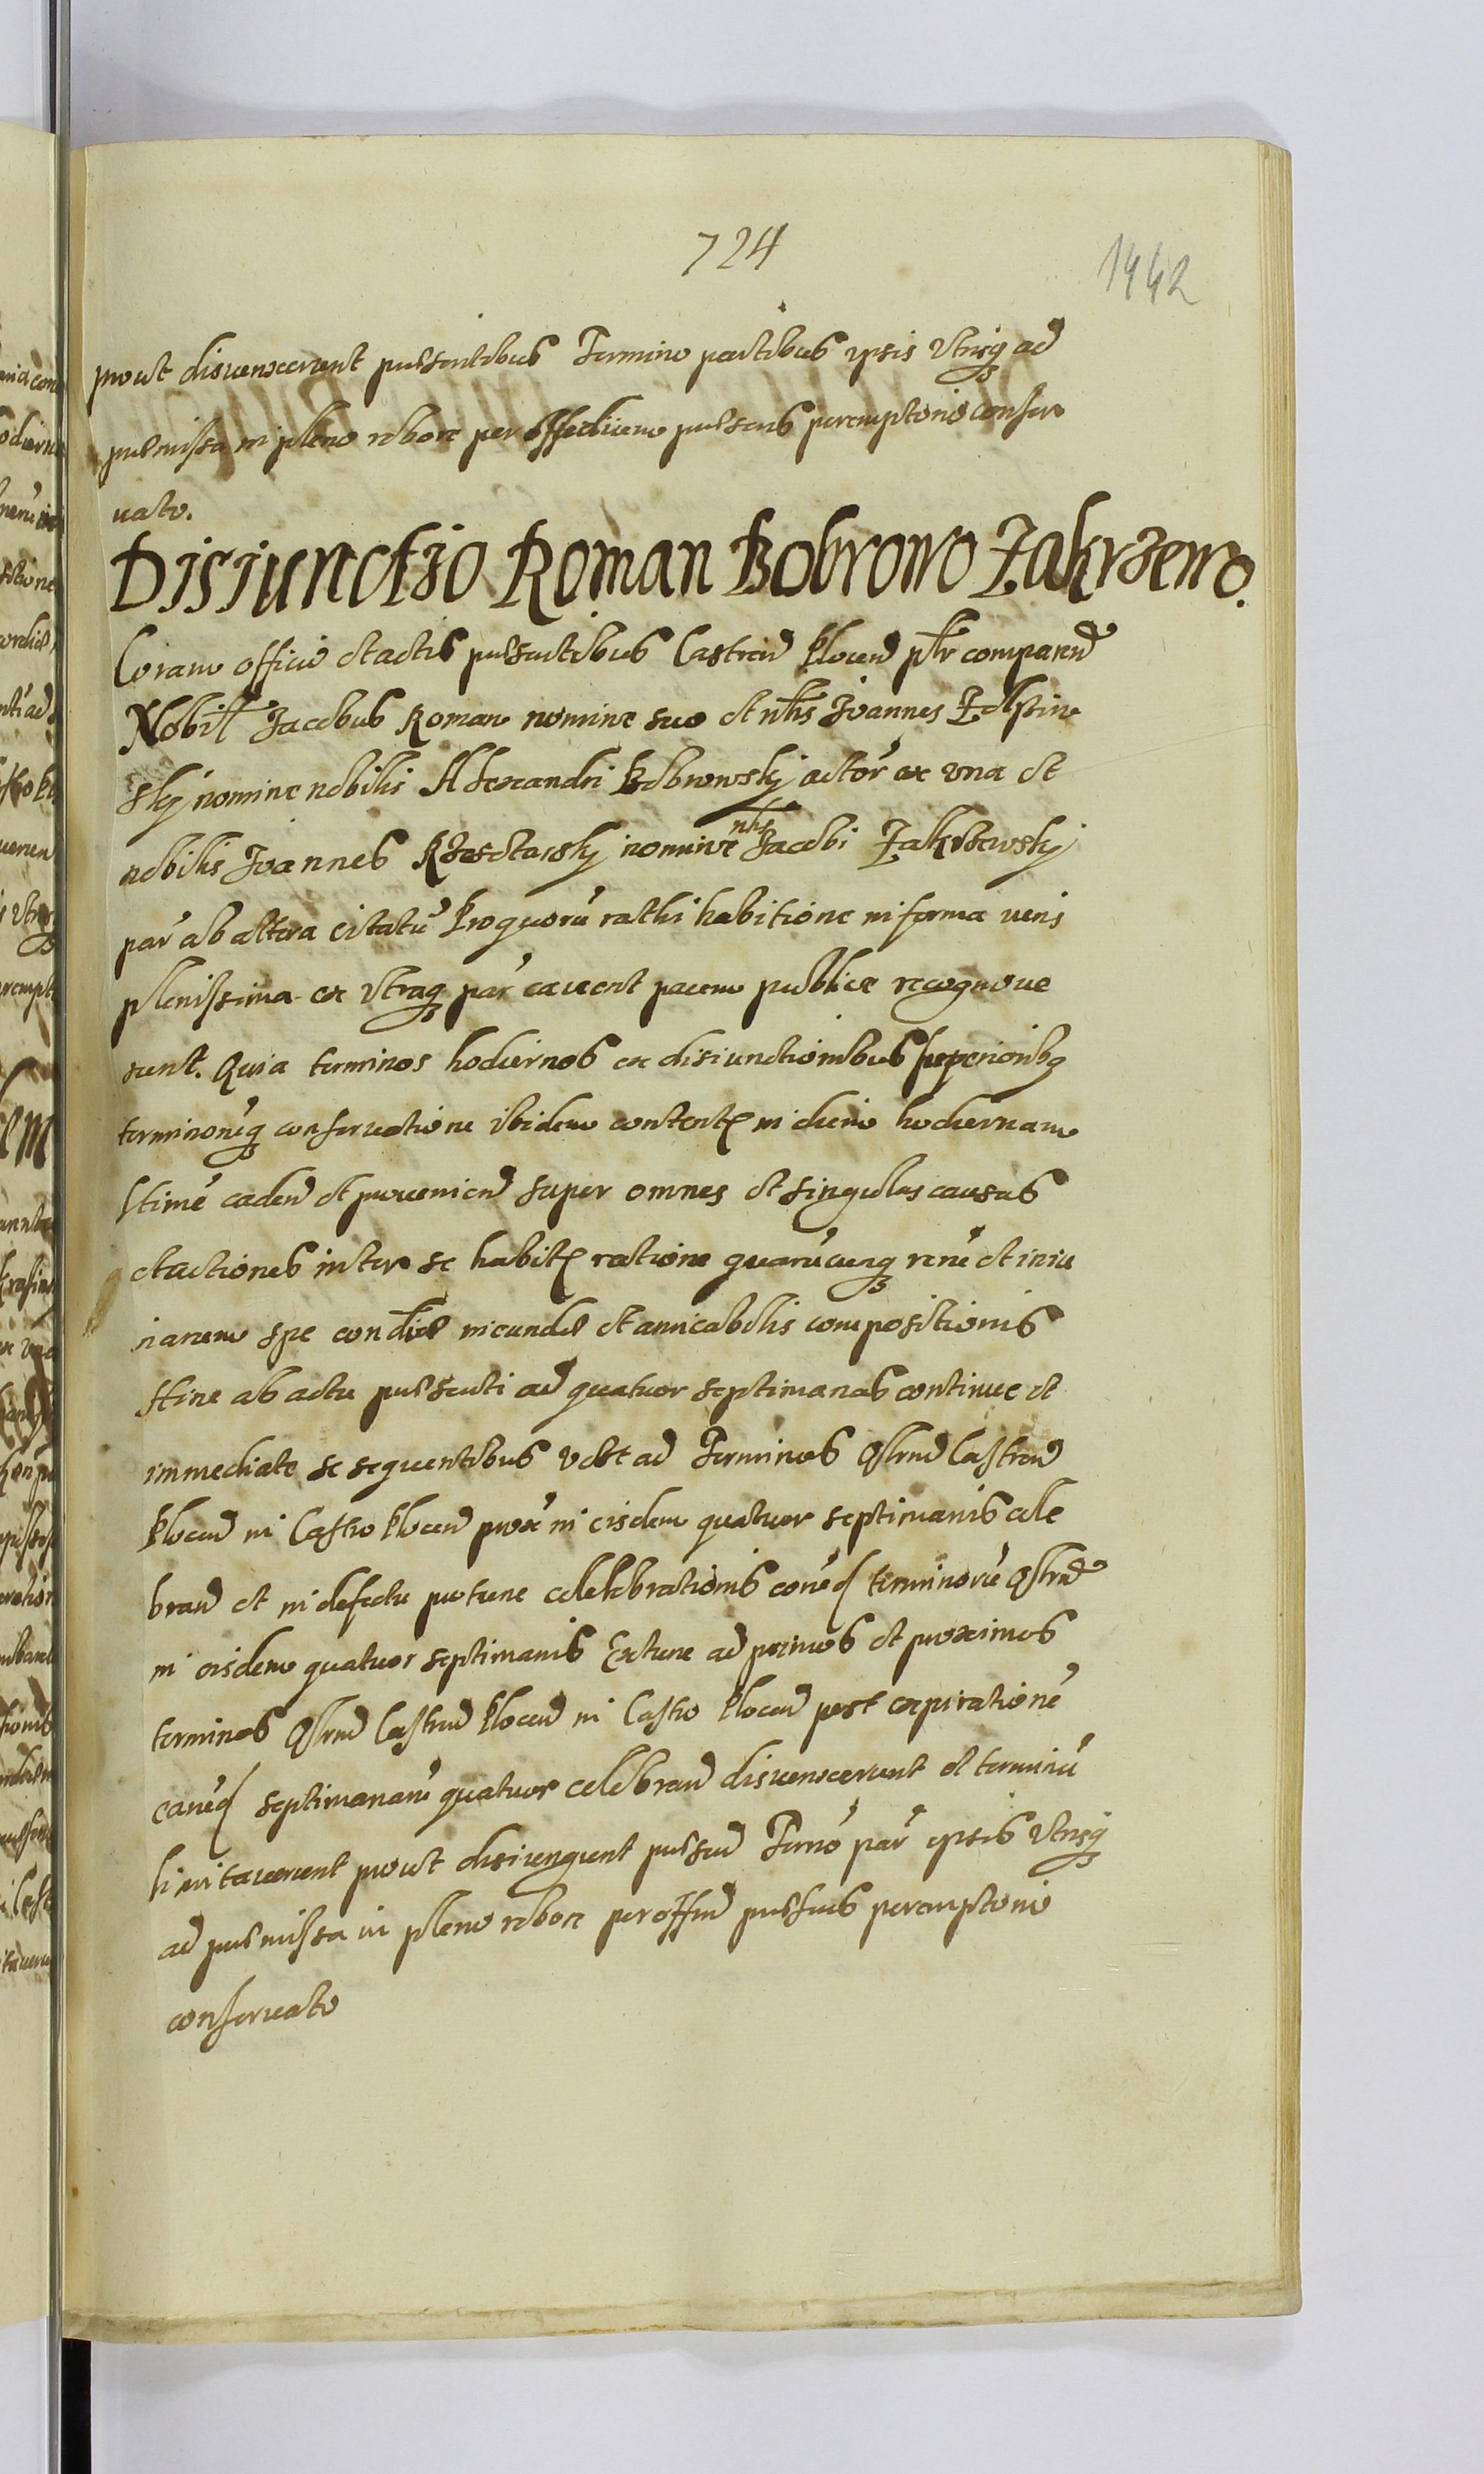 724
1442
prout disvenxerunt praesentibus Termino partibus ipsis Utrisq ad
praemissa in pleno robore per Offedivem praesens peremptorie conser
vato.
Disiunctio Roman Bobrowo Zakrzewo.
Coram officio et actis praesentibus Castren Plocen pltr comparen
Nobil Jacobus Roman nomine suo et nbls Joannes
sky nomine nobilis Alexandri Bobrowsky actor ex una et
nobilis Joannes nomine nbls Jacobi Zakrzewsky
par ab altera citatu Pro quoru rathi habitione in forma veris
plenissima ex Utraq par cavent pacem publice recognove
runt. Quia terminos hodiernos ex disiunctionibus superioribq
terminorueq conservatione ibidem content in diem hodiernam
Ltime caden et provenien super omnes et singulas causas
et actiones inter se habit ratione quarucunq reru et iniu
riarum spe condiae ineundae et amicabilis compositionis
Hinc ab actu praesenti ad quatuor septimanas continue et
immediate se sequentibus videlt ad Terminos Qstrnd Castren
Plocen in Castro Plocen prox in eisdem quatuor septimanis cele
bran et in defectu protunc celelebrationis coruend terminoru Qstrnd
in eisdem quatuor septimanis Extunc ad primos et proximos
terminos Qstrnd Castren Plocen in Castro Plocen post expiratione
earued septimanaru quatuor celebran disvenxerunt et terminu
limitaverunt prout disiungunt praesen Trmo par ipsis Utrisq
ad praemissa in pleno robore per Offm praesens peremptorie
conservato